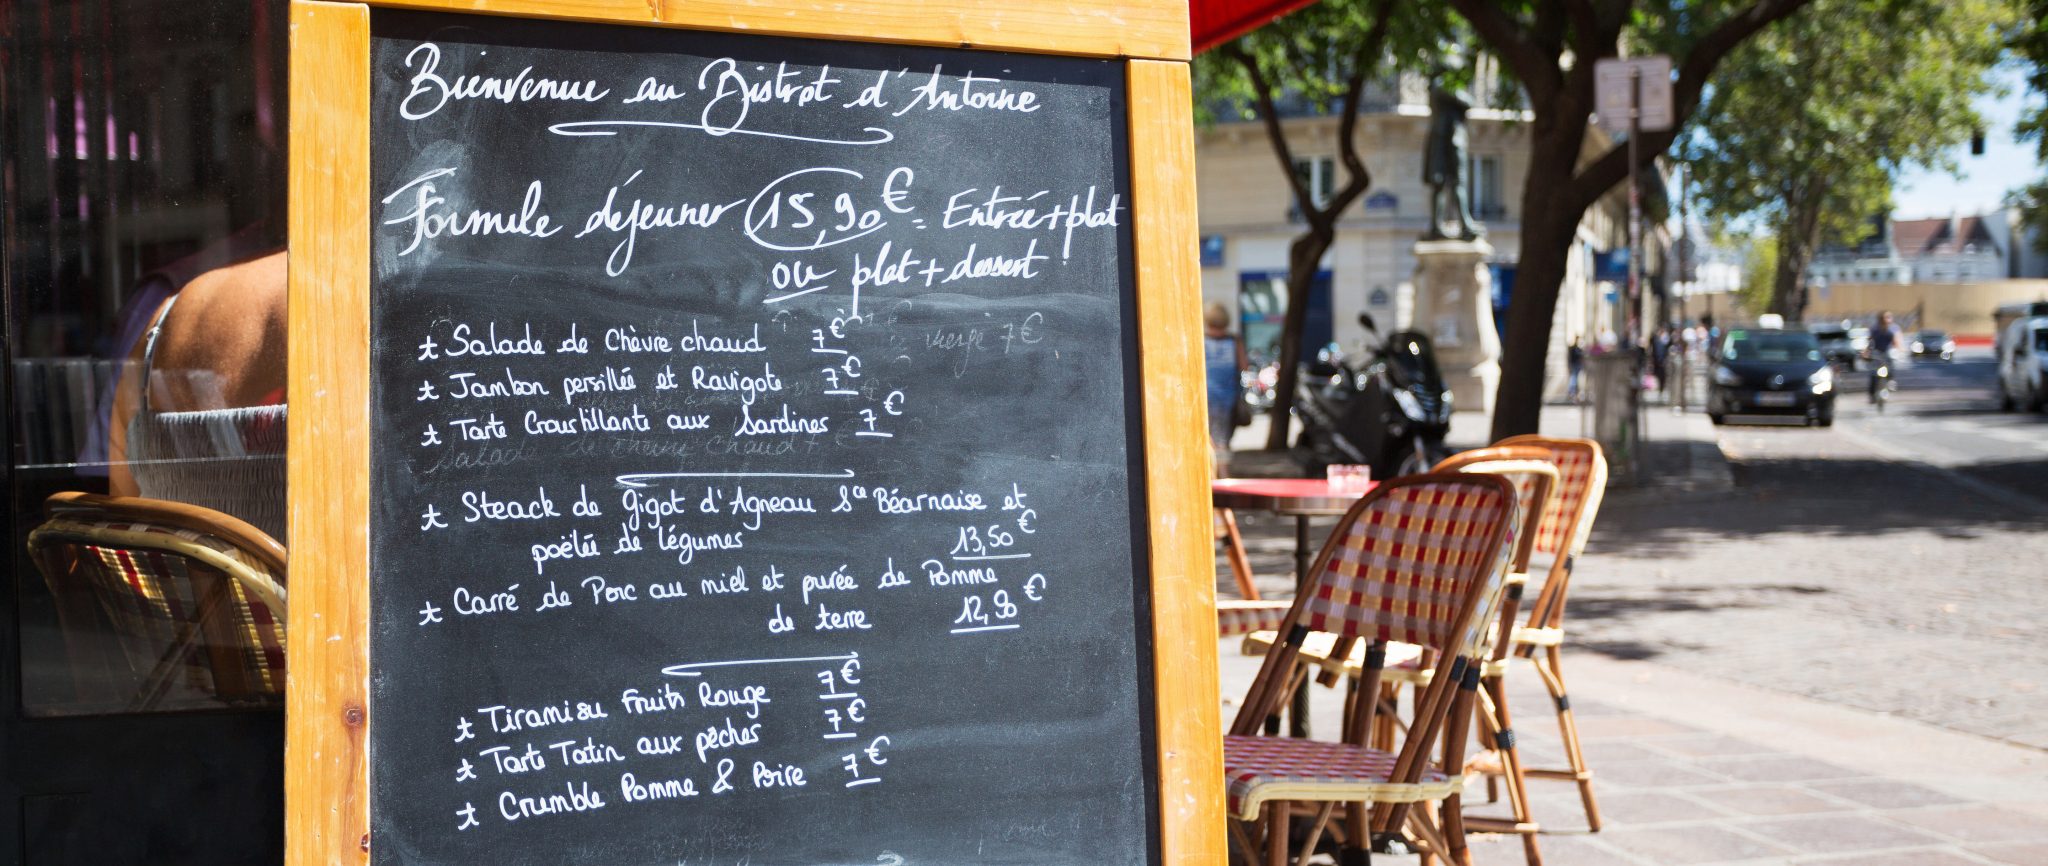 Bienvenue au Bistrot d'Antoine
Formule déjeuner 15,90€ = Entrée+plat
ou plat+dessert
* Salade de Chèvre chaud 7€
* Jambon persillée et Ravigote 7€
* Tarte Croustillante aux Sardines 7€
Salade de chaud 7€
* Steack de Gigot d'Agneau Sce Béarnaise et
poëlée de légumes 13,50€
* Carré de Porc au miel et purée de Pomme
de terre 12,90€
* Tiramisu Fruits Rouge 7€
* Tarte Tatin aux pêches 7€
* Crumble Pomme & Poire 7€